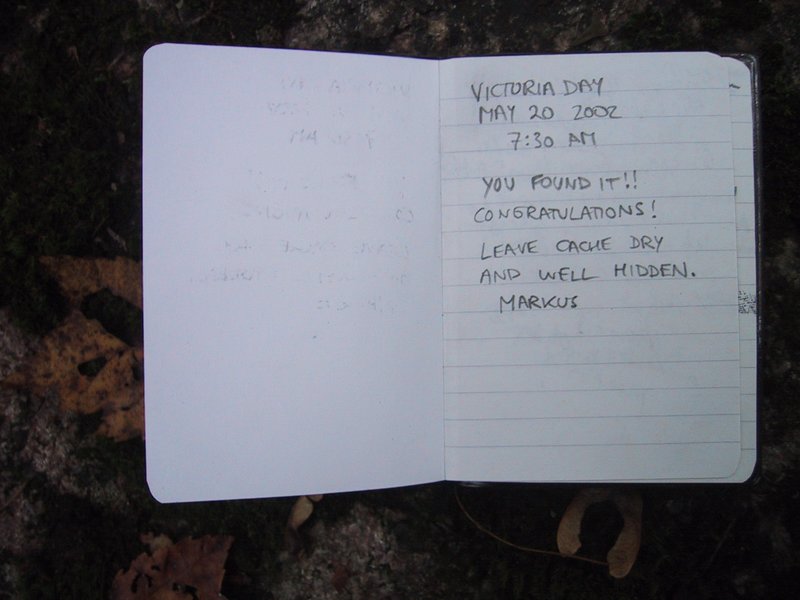 VICTORIA DAY
MAY 20 2002
7:30 AM
YOU FOUND IT!!
CONGRATULATIONS!
LEAVE CACHE DRY
AND WELL HIDDEN.
MARKUS